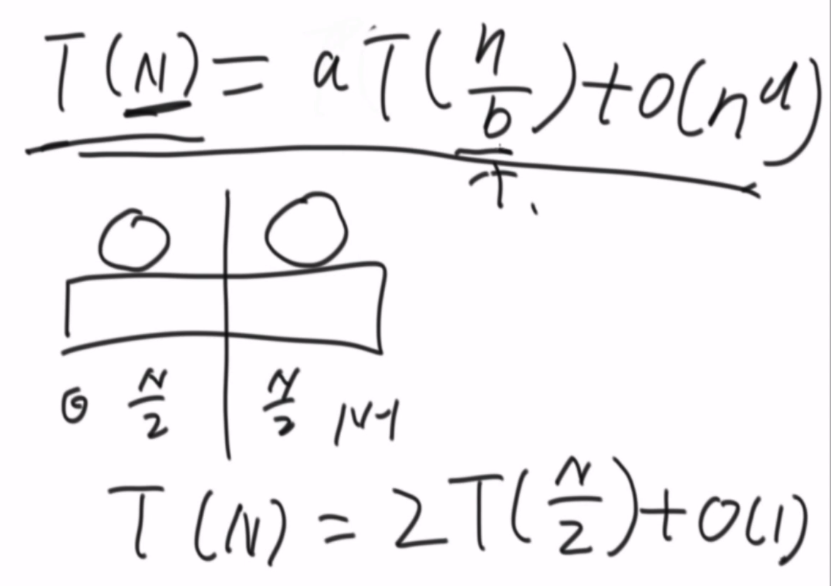 T(N) = a T(n/b) + O(n^d)
T.
0 N/2 N/2 N-1
T(N) = 2T(N/2) + O(1)